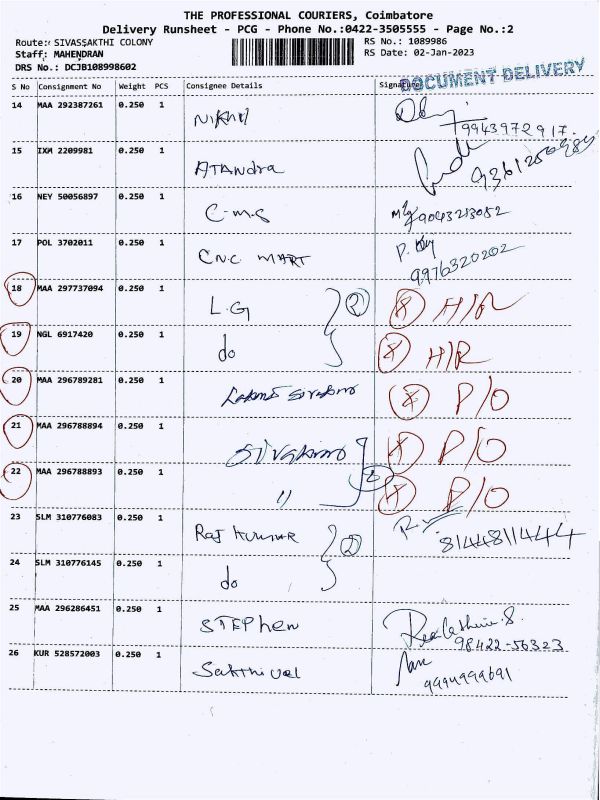 THE PROFESSIONAL COURIERS, Coimbatore
Delivery Runsheet - PCG - Phone No.:0422-3505555 - Page No.:2
Route: SIVASSAKTHI COLONY RS No.: 1089986
Staff: MAHENDRAN RS Date: 02-Jan-2023
DRS No.: DCJB108998602
DOCUMENT DELIVERY
S No Consignment No Weight PCS Consignee Details Signature
14 MAA 292387261 0.250 1 Nikhil 9943972917.
15 IXM 2209981 0.250 1 Atandra
16 NEY 50056897 0.250 1 C-m-s 9043213052
17 POL 3702011 0.250 1 C.N.C MART 9976320202
18 MAA 297737094 0.250 1 L.G 2 H/R
19 NGL 6917420 0.250 1 do H/R
20 MAA 296789281 0.250 1 P/O
21 MAA 296788894 0.250 1 P/O
22 MAA 296788893 0.250 1 " 2 P/O
23 SLM 310776083 0.250 1 Raj Kumar 2 8144811444
24 SLM 310776145 0.250 1 do
25 MAA 296286451 0.250 1 STEPhen 98422-56323
26 KUR 528572003 0.250 1 Sakthivel 9994999691